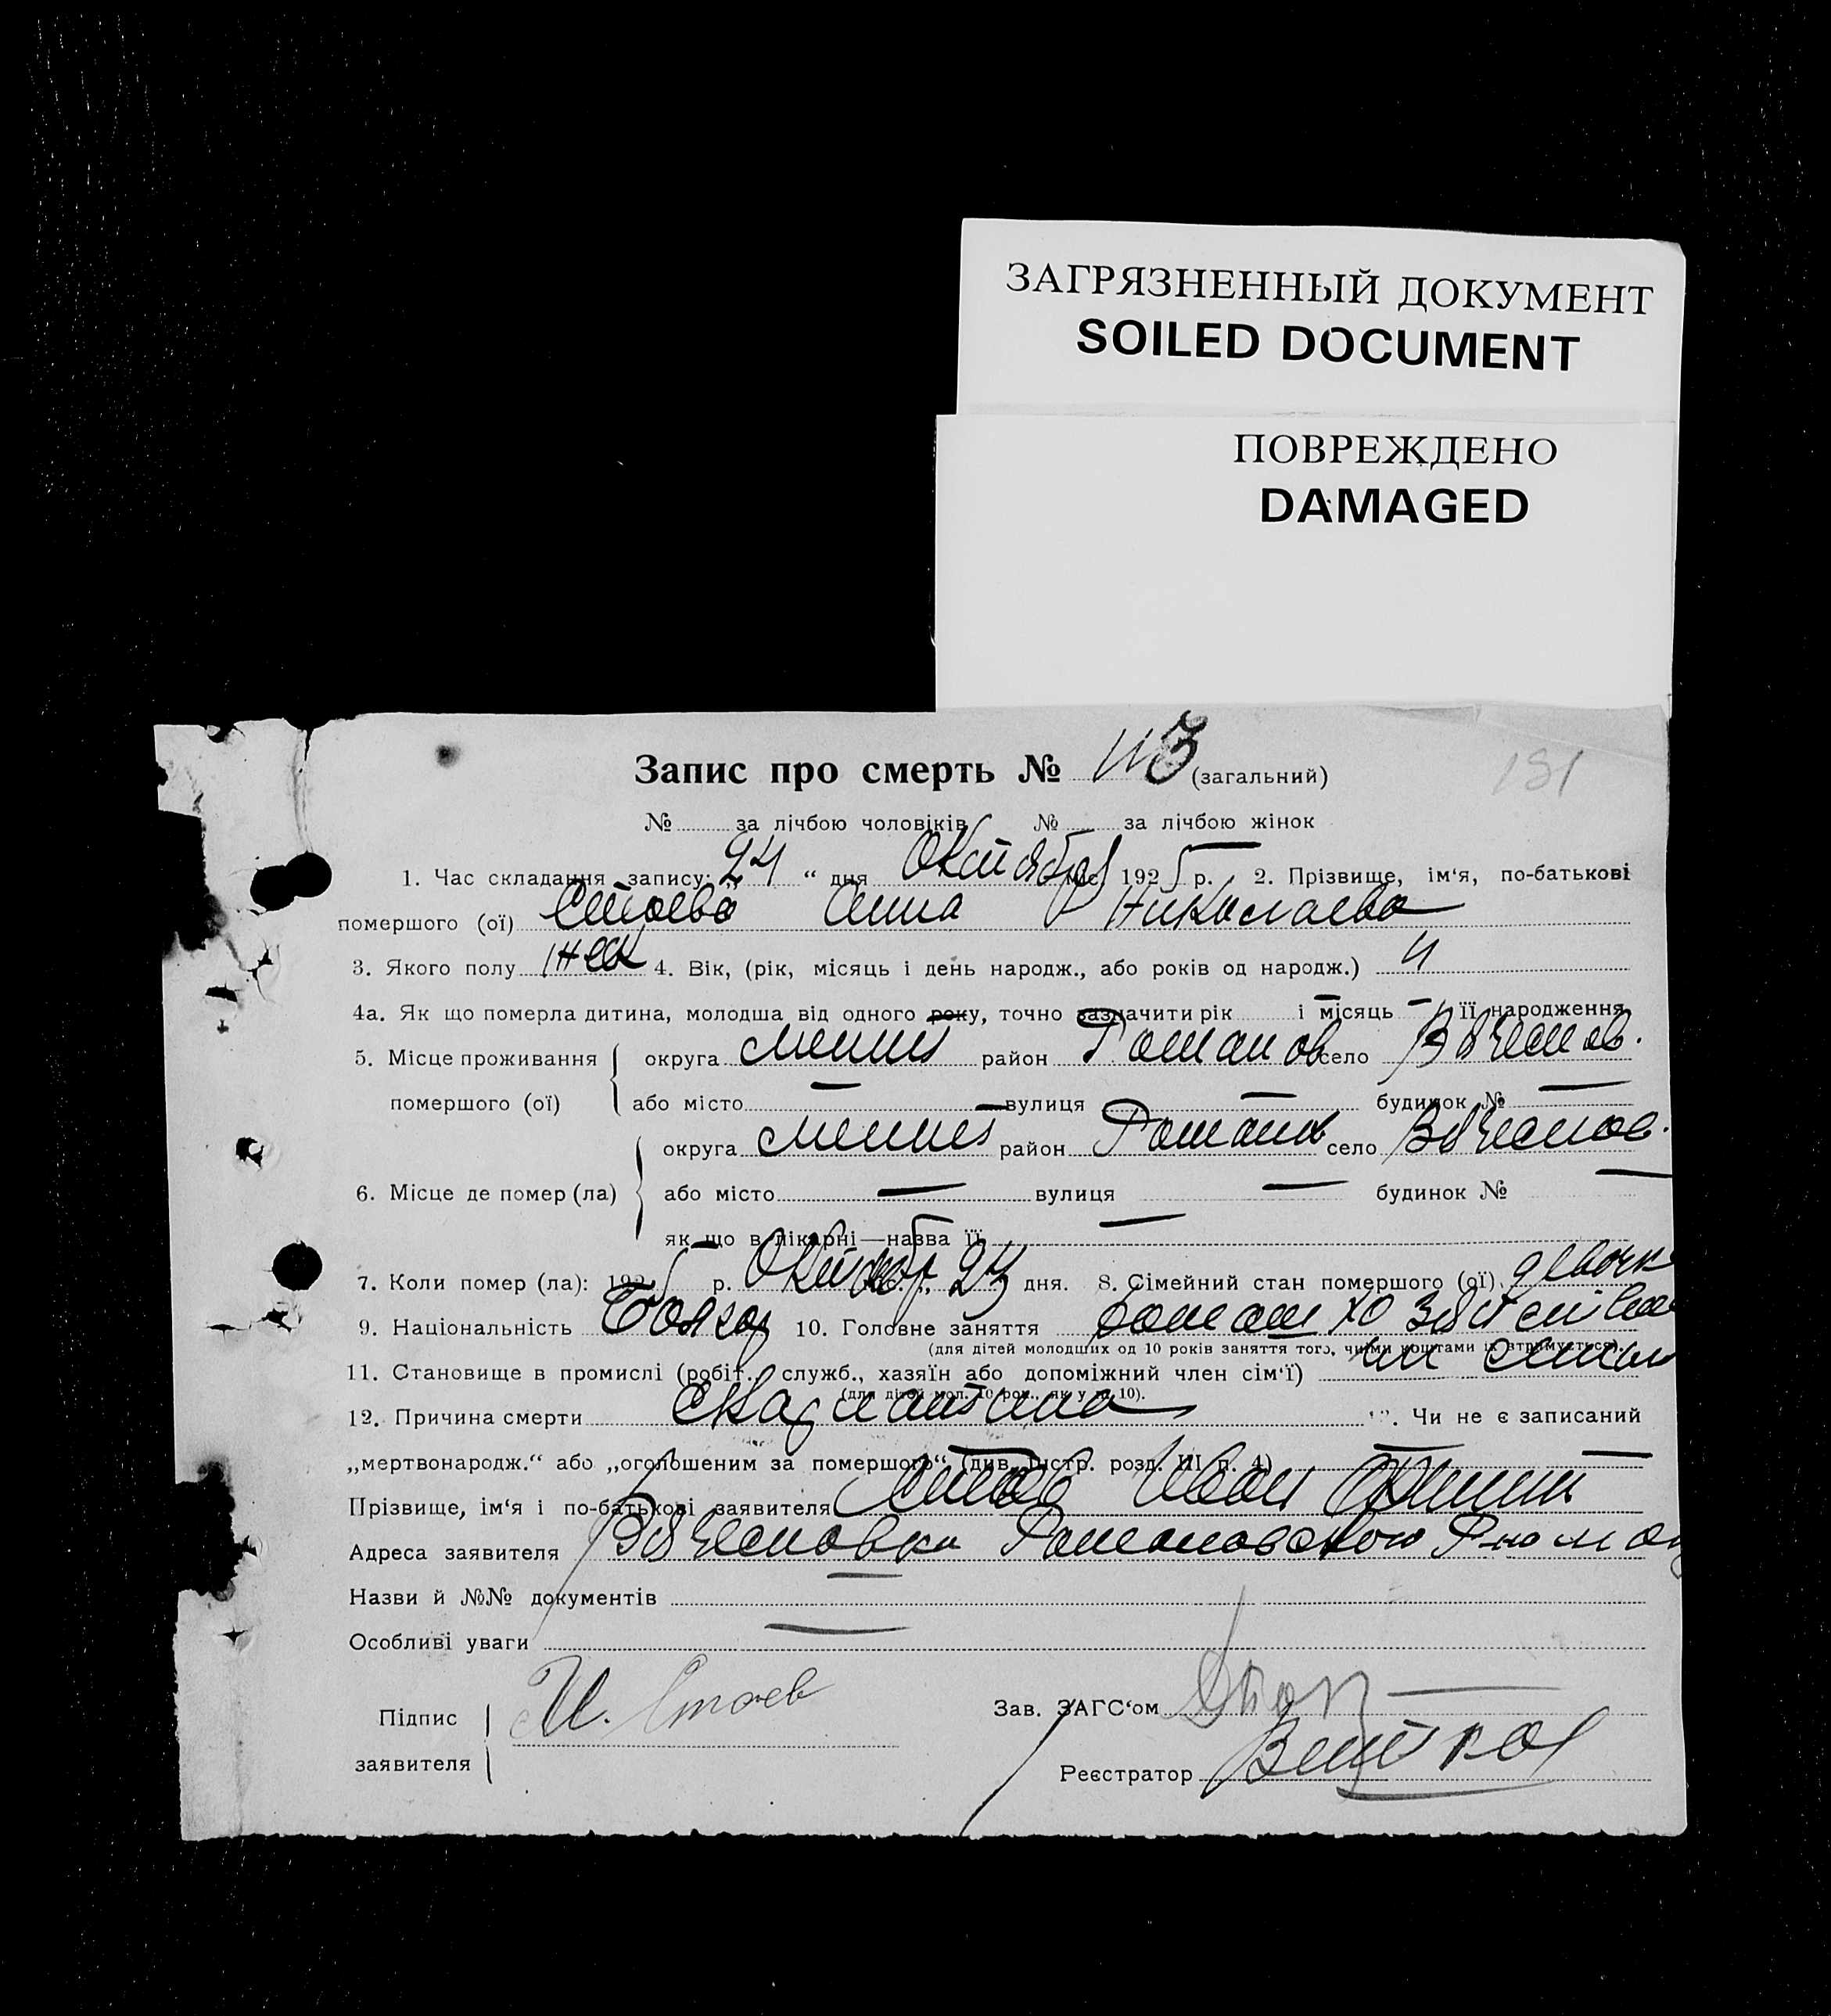 ЗАГРЯЗНЕННЫЙ ДОКУМЕНТ
SOILED DOCUMENT
ПОВРЕЖДЕНО
DAMAGED
Запис про смерть № 113 (загальний)
181
№ за лічбою чоловіків № за лічбою жінок
1. Час складання запису: „24“ дня Октября міс. 1925 р. 2. Прізвище, ім‘я, по-батькові
помершого (ої) Стоева Анна Николаева
3. Якого полу жен 4. Вік, (рік, місяць і день народж., або років од народж.) 4
4а. Як що померла дитина, молодша від одного року, точно зазначити рік — і місяць — її народження
5. Місце проживання округа Мелит район Роман ов село Вячеслов.
помершого (ої) або місто — вулиця — будинок № —
округа Мелит район Романов село Вячеслов.
6. Місце де помер (ла) або місто — вулиця — будинок № —
як що в лікарні—назва її —
7. Коли помер (ла): 1925 р. Октябр 23 дня. 8. Сімейний стан помершого (ої) девочк
9. Національність Болгар 10. Головне заняття
(для дітей молодших од 10 років заняття того, чиїми коштами їх втримується).
11. Становище в промислі (робіт., служб., хазяїн або допоміжний член сім‘ї) чл семьи
(для дітей мол. 10 рок., як у п. 10).
12. Причина смерти Скарлатина 13. Чи не є записаний
„мертвонародж.“ або „оголошеним за помершого“ (див. Інстр. розд. III п. 4) —
Прізвище, ім‘я і по-батькові заявителя Иван
Адреса заявителя Вячесловка Романовского Р-на
Назви й №№ документів —
Особливі уваги —
Підпис И. Стоев Зав. ЗАГС‘ом
заявителя Реєстратор